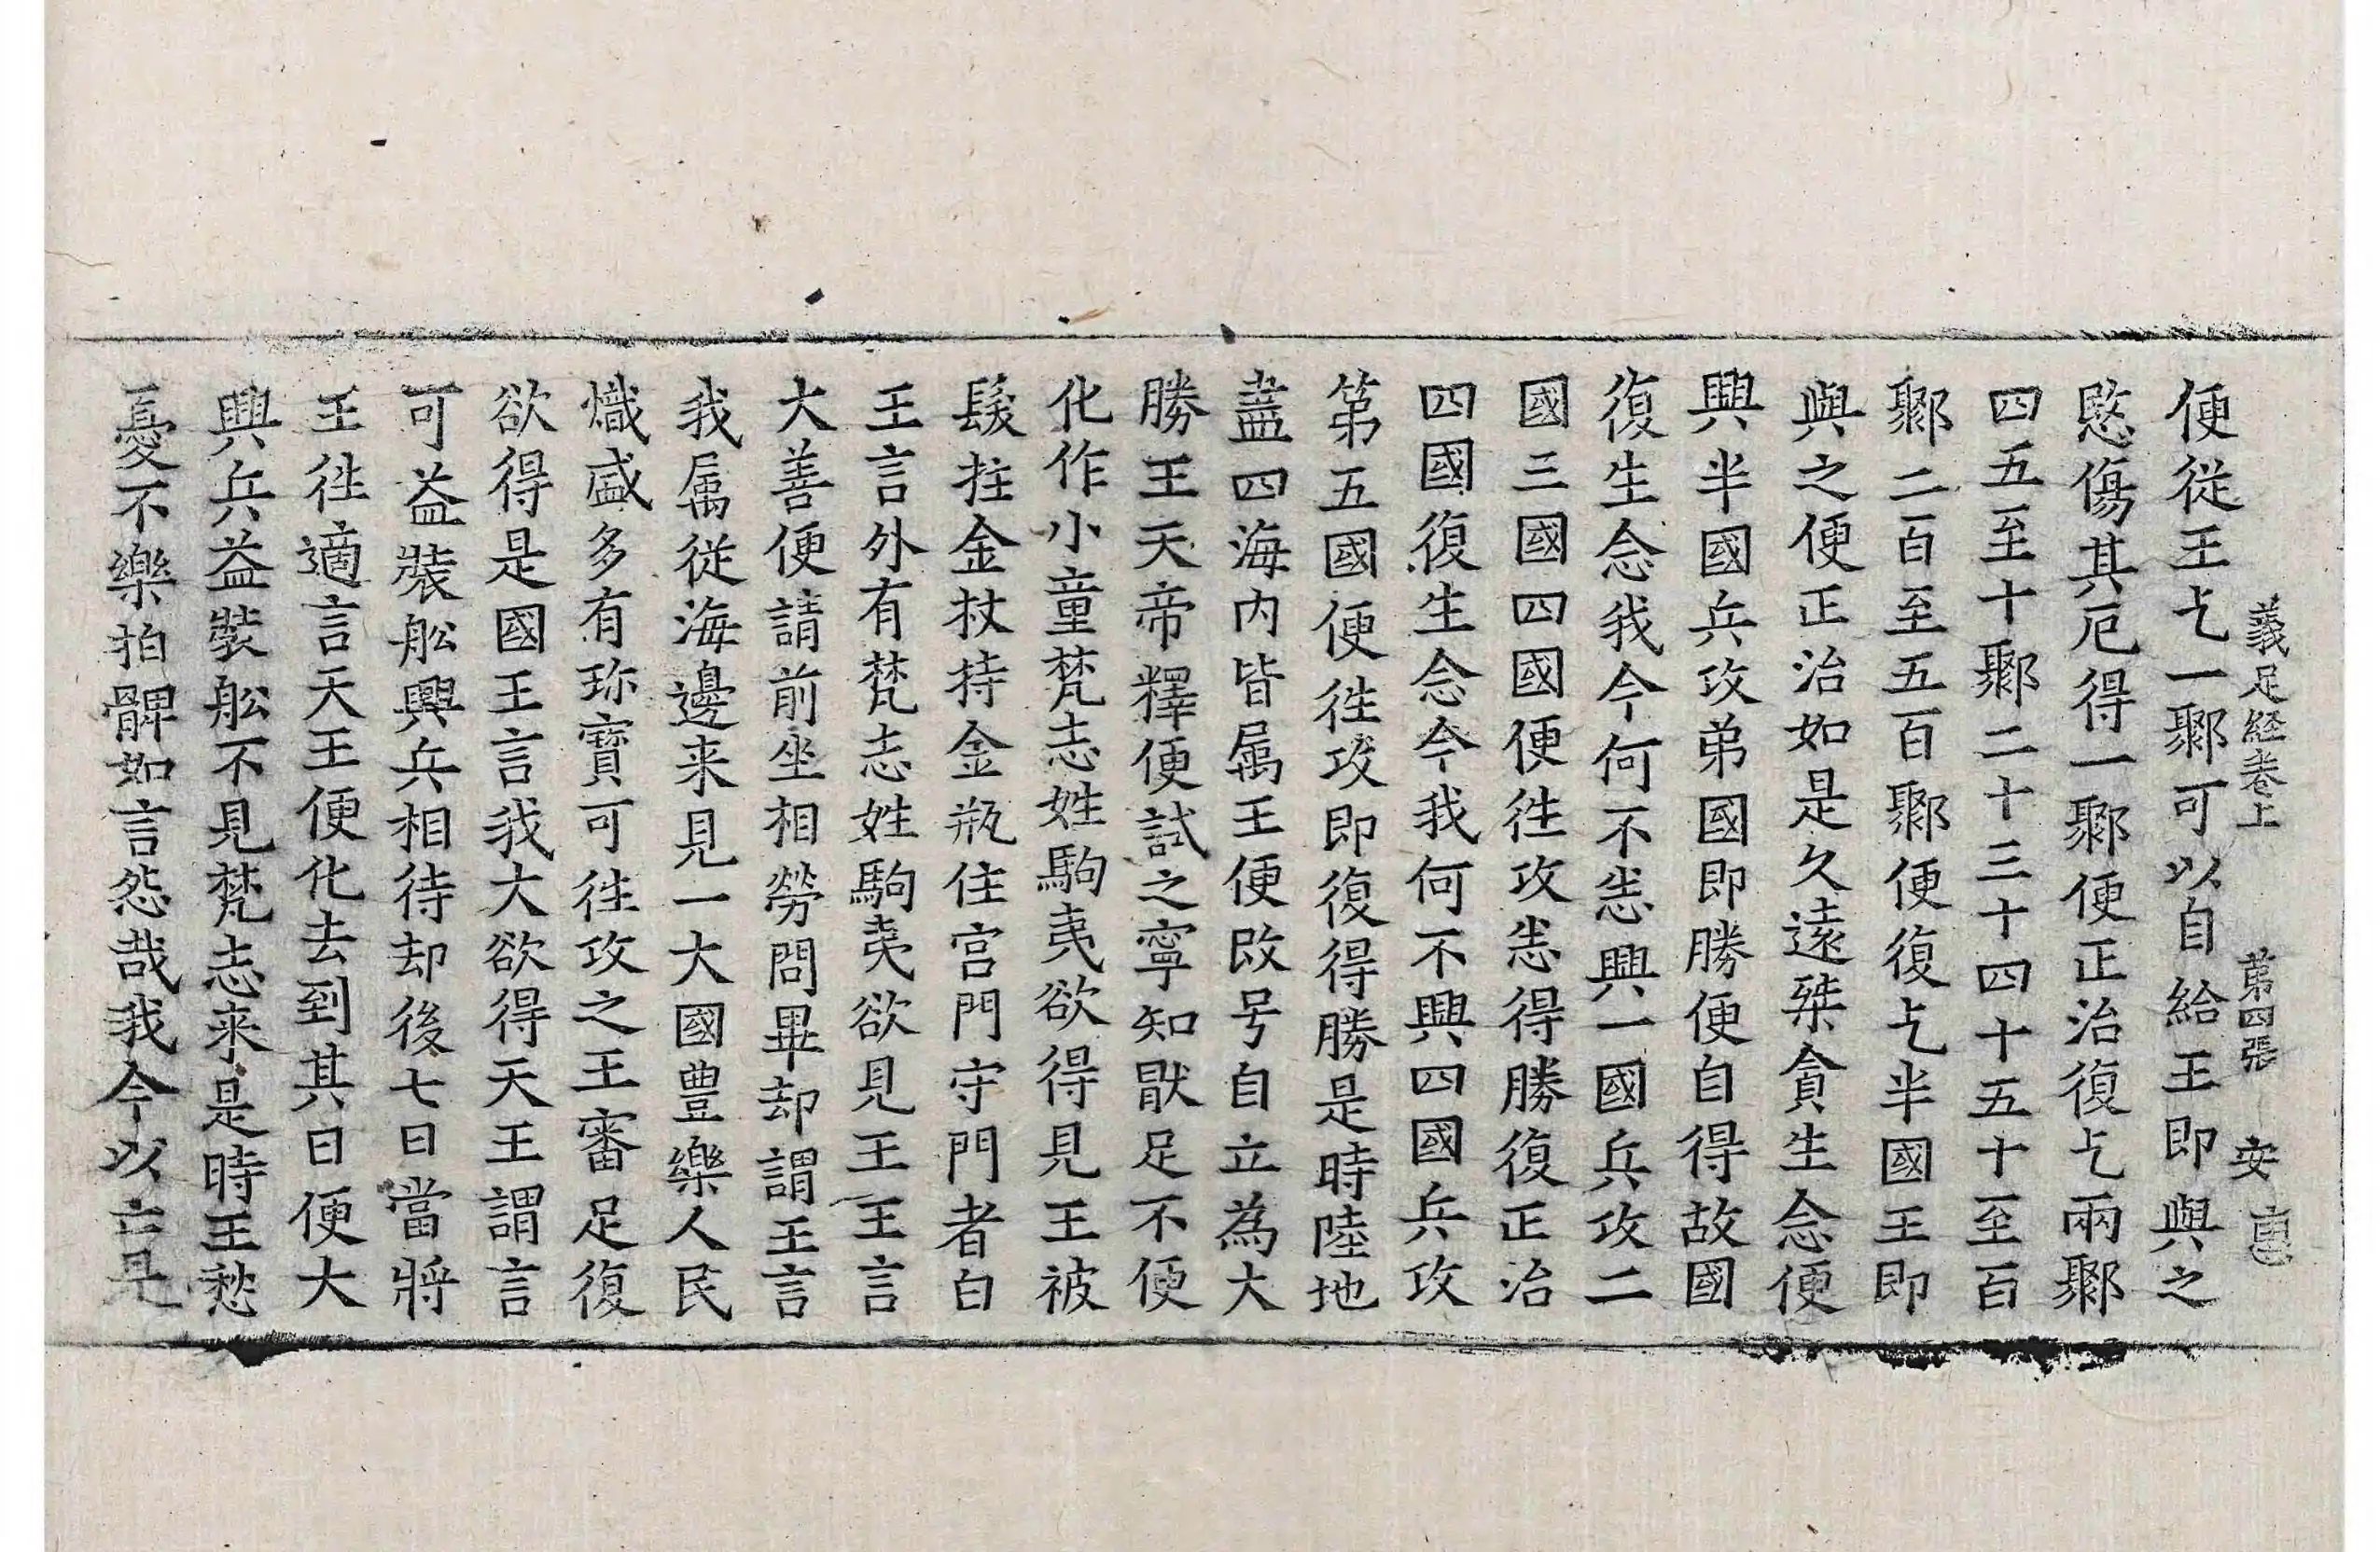 義足経卷上 第四張 安
便從王乞一鄹可以自給王即與之
愍傷其厄得一鄹便正治復乞兩鄹
四五至十鄹二十三十四十五十至百
鄹二百至五百鄹便復乞半國王即
與之便正治如是久遠桀貪生念便
興半國兵攻弟國即勝便自得故國
復生念我今何不悉興一國兵攻二
國三國四國便徃攻悉得勝復正治
四國復生念今我何不興四國兵攻
第五國便徃攻即復得勝是時陸地
盡四海内皆屬王便改号自立為大
勝王天帝釋便試之寧知猒足不便
化作小童梵志姓駒夷欲得見王被
髮拄金杖持金瓶住宫門守門者白
王言外有梵志姓駒夷欲見王王言
大善便請前坐相勞問畢却謂王言
我属從海邊来見一大國豊樂人民
熾盛多有珎寶可徃攻之王審足復
欲得是國王言我大欲得天王謂言
可益裝舩興兵相待却後七日當將
王徃適言天王便化去到其日便大
興兵益裝舩不見梵志来是時王愁
憂不樂拍髀如言怨哉我今以亡是